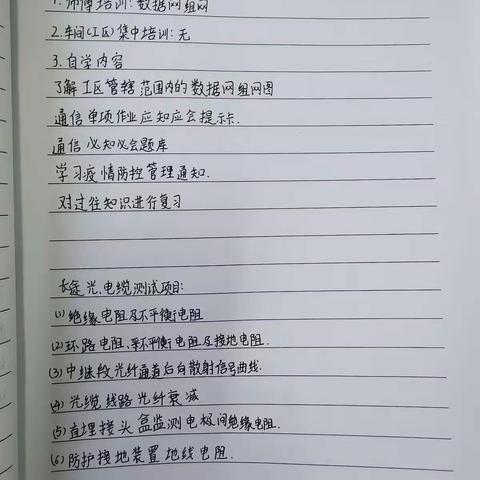 1. 师傅培训:数据网组网
2. 车间(工区)集中培训:无
3. 自学内容
了解工区管辖范围内的数据网组网图
通信单项作业应知应会提示卡.
通信必知必会题库
学习疫情防控管理通知.
对过往知识进行复习
长途光、电缆测试项目:
(1) 绝缘电阻及不平衡电阻
(2) 环路电阻、不平衡电阻及接地电阻.
(3) 中继段光纤通道后向散射信号曲线.
(4) 光缆线路光纤衰减
(5) 直埋接头盒监测电极间绝缘电阻.
(6) 防护接地装置地线电阻.